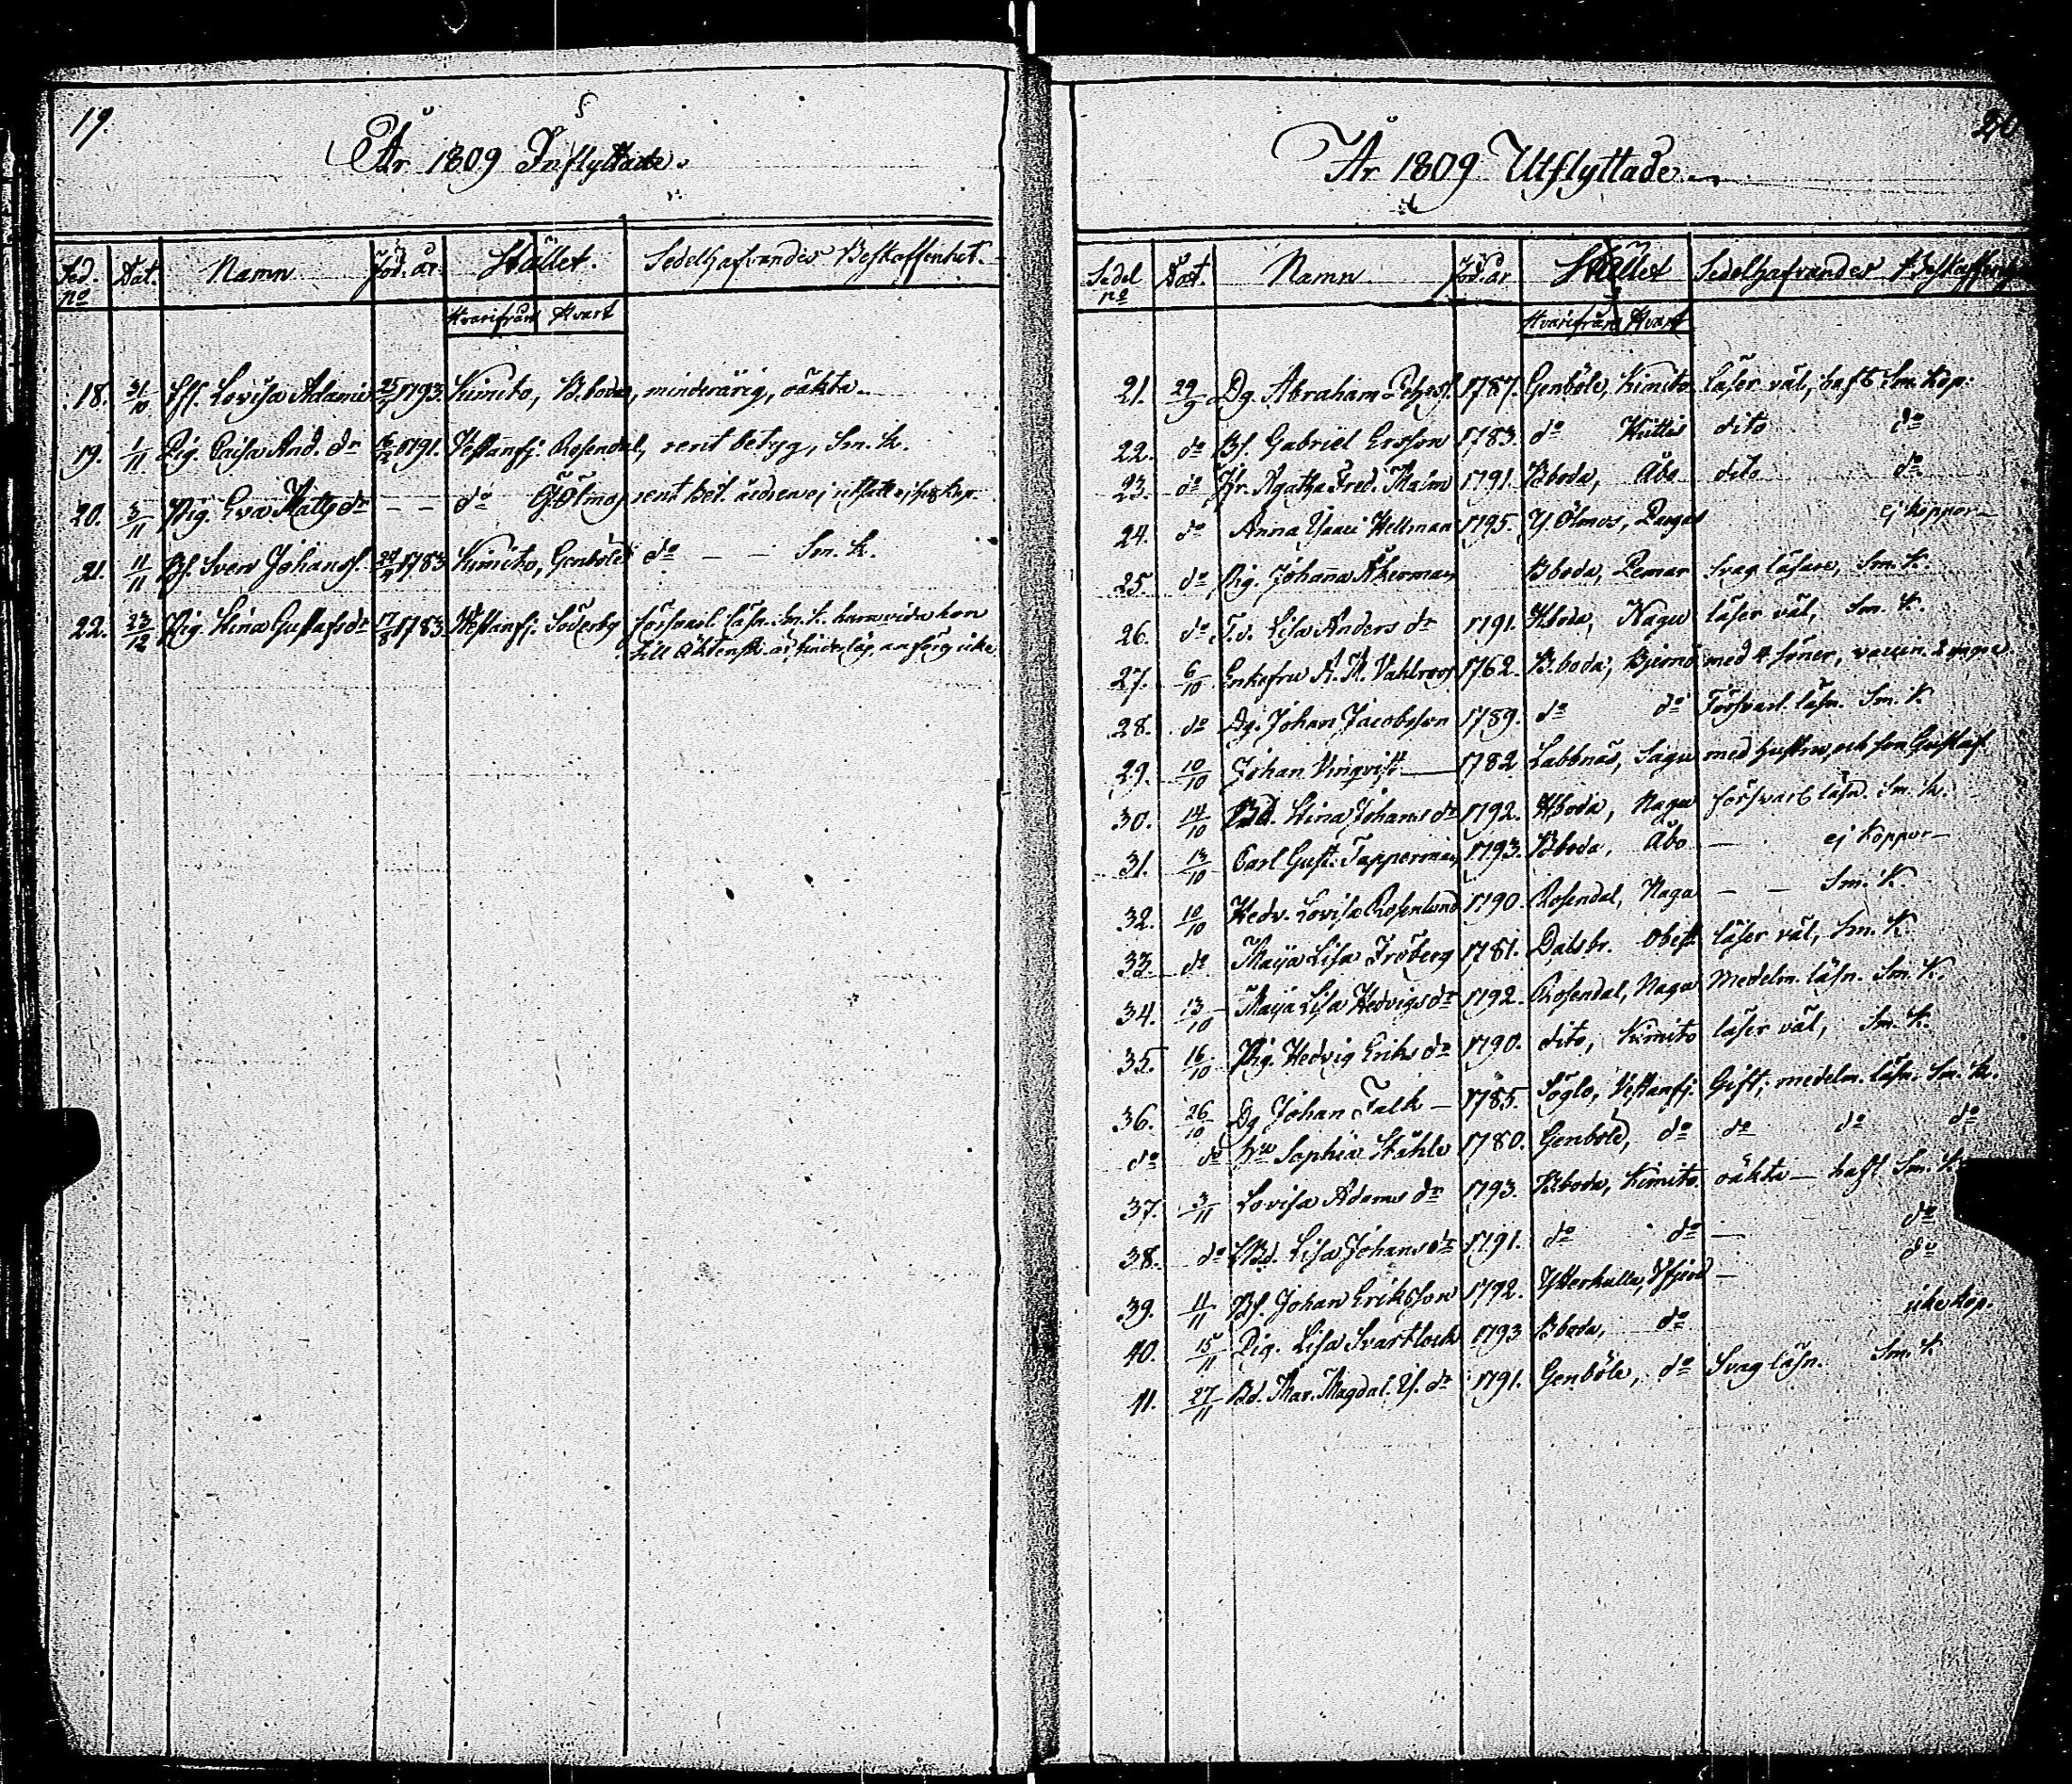 19.
År 1809 Inflyttade.
Sed. no Dat. Namn Föd. år Stället. Sedelhafvandes Beskaffenhet.
Hvarifrån Hvart
18. 31/10 Lovisa Adams 25/ 1793. Kimito, B.boda, minderårig, oäkta
19. 1/11 Pig. Caisa And. dr 16/2 1791. Vestanfj. Rosendal, rent betyg, Sm. K.
20. 3/11 Pig. Eva Matts dr – – do Ölmos rent bet.
21. 11/11 Bs. Sven Johanss. 24/ 1783 Kimito, Genböle do – – Sm. K.
22. 23/12 Pig. Stina Gustafs dr 17/8 1783. Westanfj. Söderby försvarl. läsn. Sm. K. hon
till äktensk.
20
År 1809 Utflyttade
Sedel no Dat. Namn föd. år Stället Sedelhafvandes Beskaffenh
Hvarifrån Hvart
21. 29/9 Dg. Abraham 1787. Genböle, Kimito läser väl, haft Sm. Kop:
22. do Bs. Gabriel Ersson 1783. do Hittis dito do
23. do Jfr. Agatha Fred. Malm 1791. B.boda, Åbo dito do
24. do Anna Hellman 1795. Y. Ölmos, Pargas ej koppor
25. do Pig. Johanna Åkerman B.boda, Pemar Svag läsare, Sm. K.
26. do Lisa Anders dr 1791. B.boda, Nagu läser väl, Sm. K.
27. 6/10 Enkefru A. M. Vahlroos 1762. B.boda, Bjerno med 4 söner, vaccin. 2 yngre
28. do Dg. Johan Jacobsson 1789. do do Försvarl. läsn. Sm. K.
29. 10/10 Johan Vinqvist 1782 Labbnäs, Sagu med hustru och son Gustaf
30. 14/10 Bd. Stina Johans dr 1792. B.boda, Nagu försvarl. läsn. Sm. K.
31. 13/10 Carl Gust. Tapperman 1793. B.boda, Åbo – ej koppor
32. 10/10 Hedv. Lovisa Rosenlund 1790. Rosendal, Nagu – – Sm. K.
33. do Maija Lisa Fröberg 1781. Dalsbr. läser väl, Sm. K.
34. 13/10 Maija Lisa Hedvigs dr 1792. Rosendal, Nagu Medelm. läsn. Sm. K.
35. 16/10 Pig. Hedvig Eriks dr 1790. dito, Kimito läser väl, Sm. K.
36. 26/10 Dg Johan Falk – 1785. Söglo, Vestanfj. Gift, medelm. läsn. Sm. K.
do do Sophia Ståhle 1780. Genböle, do do do do
37. 3/11 Lovisa Adams dr 1793. B.boda, Kimito oäkta – haft Sm. K.
38. do Bd. Lisa Johans dr 1791. do do – do
39. 11/11 Bs. Johan Eriksson 1792. Ytterkulla, Vfjerd – do
40. 15/11 Pig. Lisa Svartlock 1793 B.boda, do icke kop.
41. 27/11 Bd. Mar. Magdal. dr 1791. Genböle, do Svag läsn. Sm. K